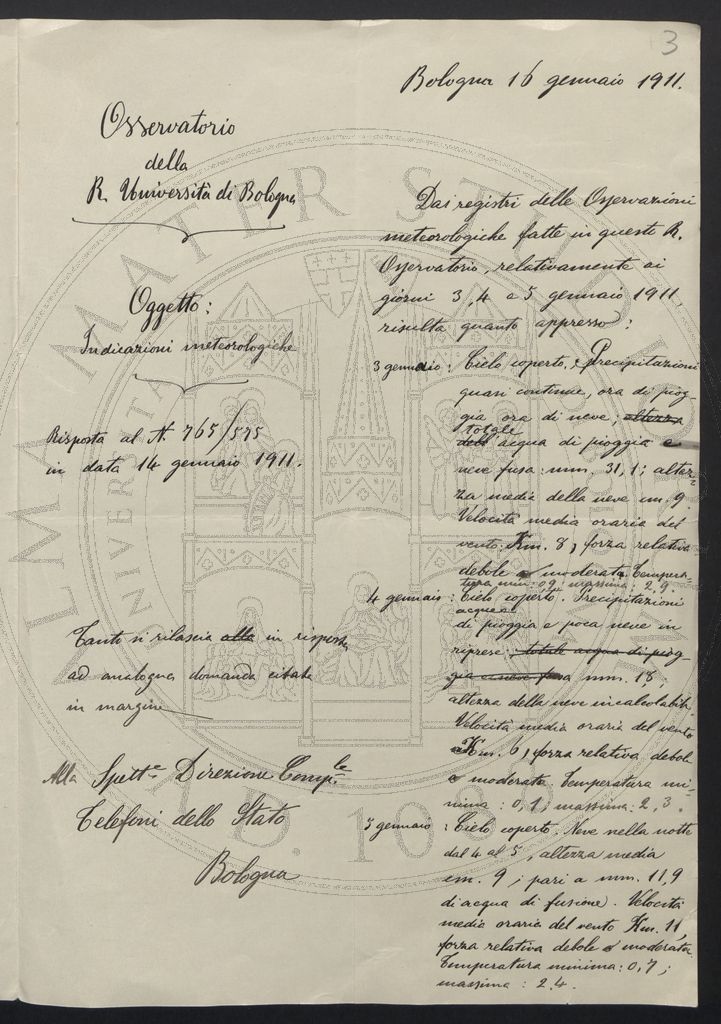 3
Bologna 16 gennaio 1911.
Osservatorio
della
R. Università di Bologna
Oggetto:
Indicazioni meteorologiche
Risposta al N. 765/575
in data 14 gennaio 1911.
Tanto si rilascia alla in risposta
ad analoga domanda citata
in margine
Alla Spett.e Direzione Comp.le
Telefoni dello Stato
Bologna
Dai registri delle Osservazioni
meteorologiche fatte in questo R.
Osservatorio, relativamente ai
giorni 3, 4 e 5 gennaio 1911,
risulta quanto appresso:
3 gennaio: Cielo coperto. Precipitazioni
quasi continue, ora di piog-
gia ora di neve, altezza
totale
dell'acqua di pioggia e
neve fusa: mm. 31,1; altez-
za media della neve cm. 9.
Velocità media oraria del
vento Km. 8, forza relativa
debole o moderata. Tempera-
tura min: 0,9, massima: 2,9.
4 gennaio: Cielo coperto. Precipitazioni
acquea
di pioggia e poca neve in
riprese; totale acqua di piog-
gia e neve fusa mm. 18;
altezza della neve incalcolabile.
Velocità media oraria del vento
Km. 6, forza relativa debole
o moderata. Temperatura mi-
nima: 0,1; massima: 2,3.
5 gennaio: Cielo coperto. Neve nella notte
dal 4 al 5, altezza media
cm. 9; pari a mm. 11,9
di acqua di fusione. Velocità
media oraria del vento Km. 11,
forza relativa debole o moderata.
Temperatura minima: 0,7;
massima: 2.4.
ALMA MATER STUDIORUM
UNIVERSITÀ
A.D. 1088